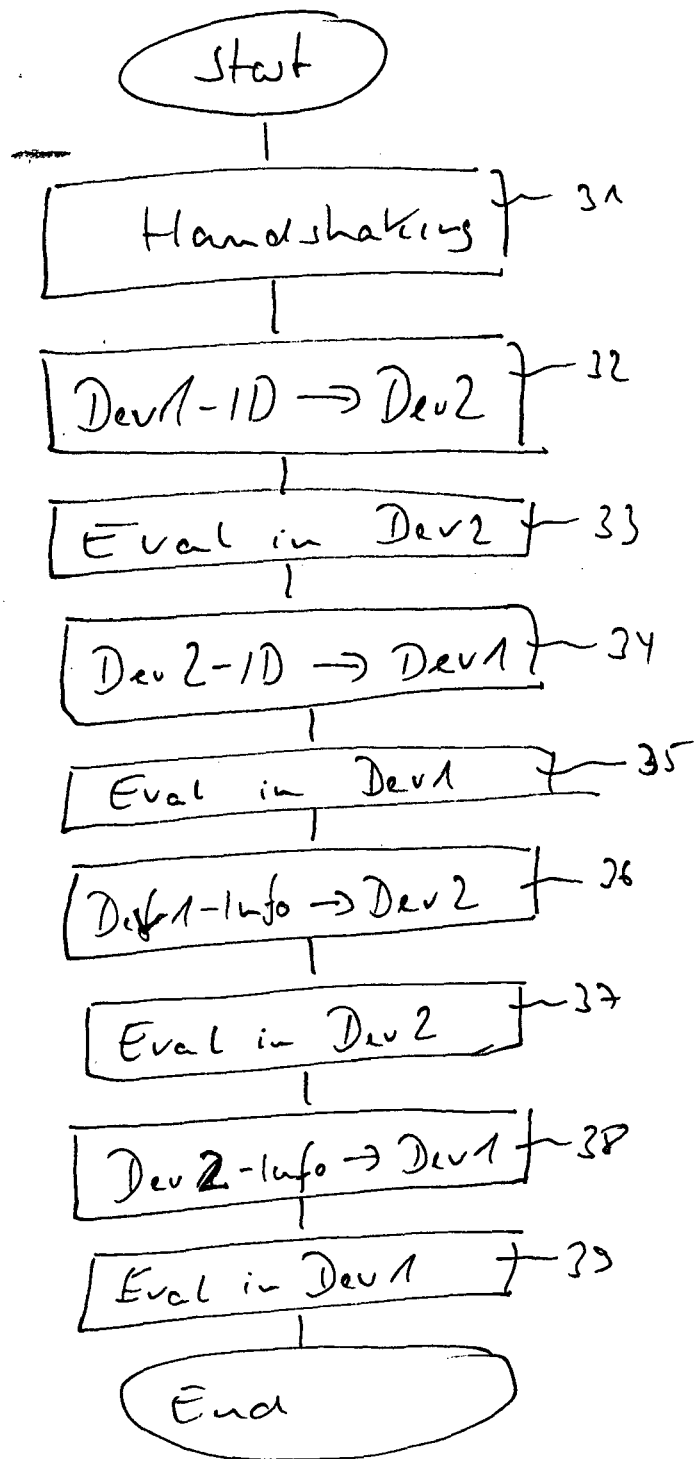 Start
Handshaking 31
Dev1-ID → Dev2 32
Eval in Dev2 33
Dev2-ID → Dev1 34
Eval in Dev1 35
Dev1-Info → Dev2 36
Eval in Dev2 37
Dev2-Info → Dev1 38
Eval in Dev1 39
End